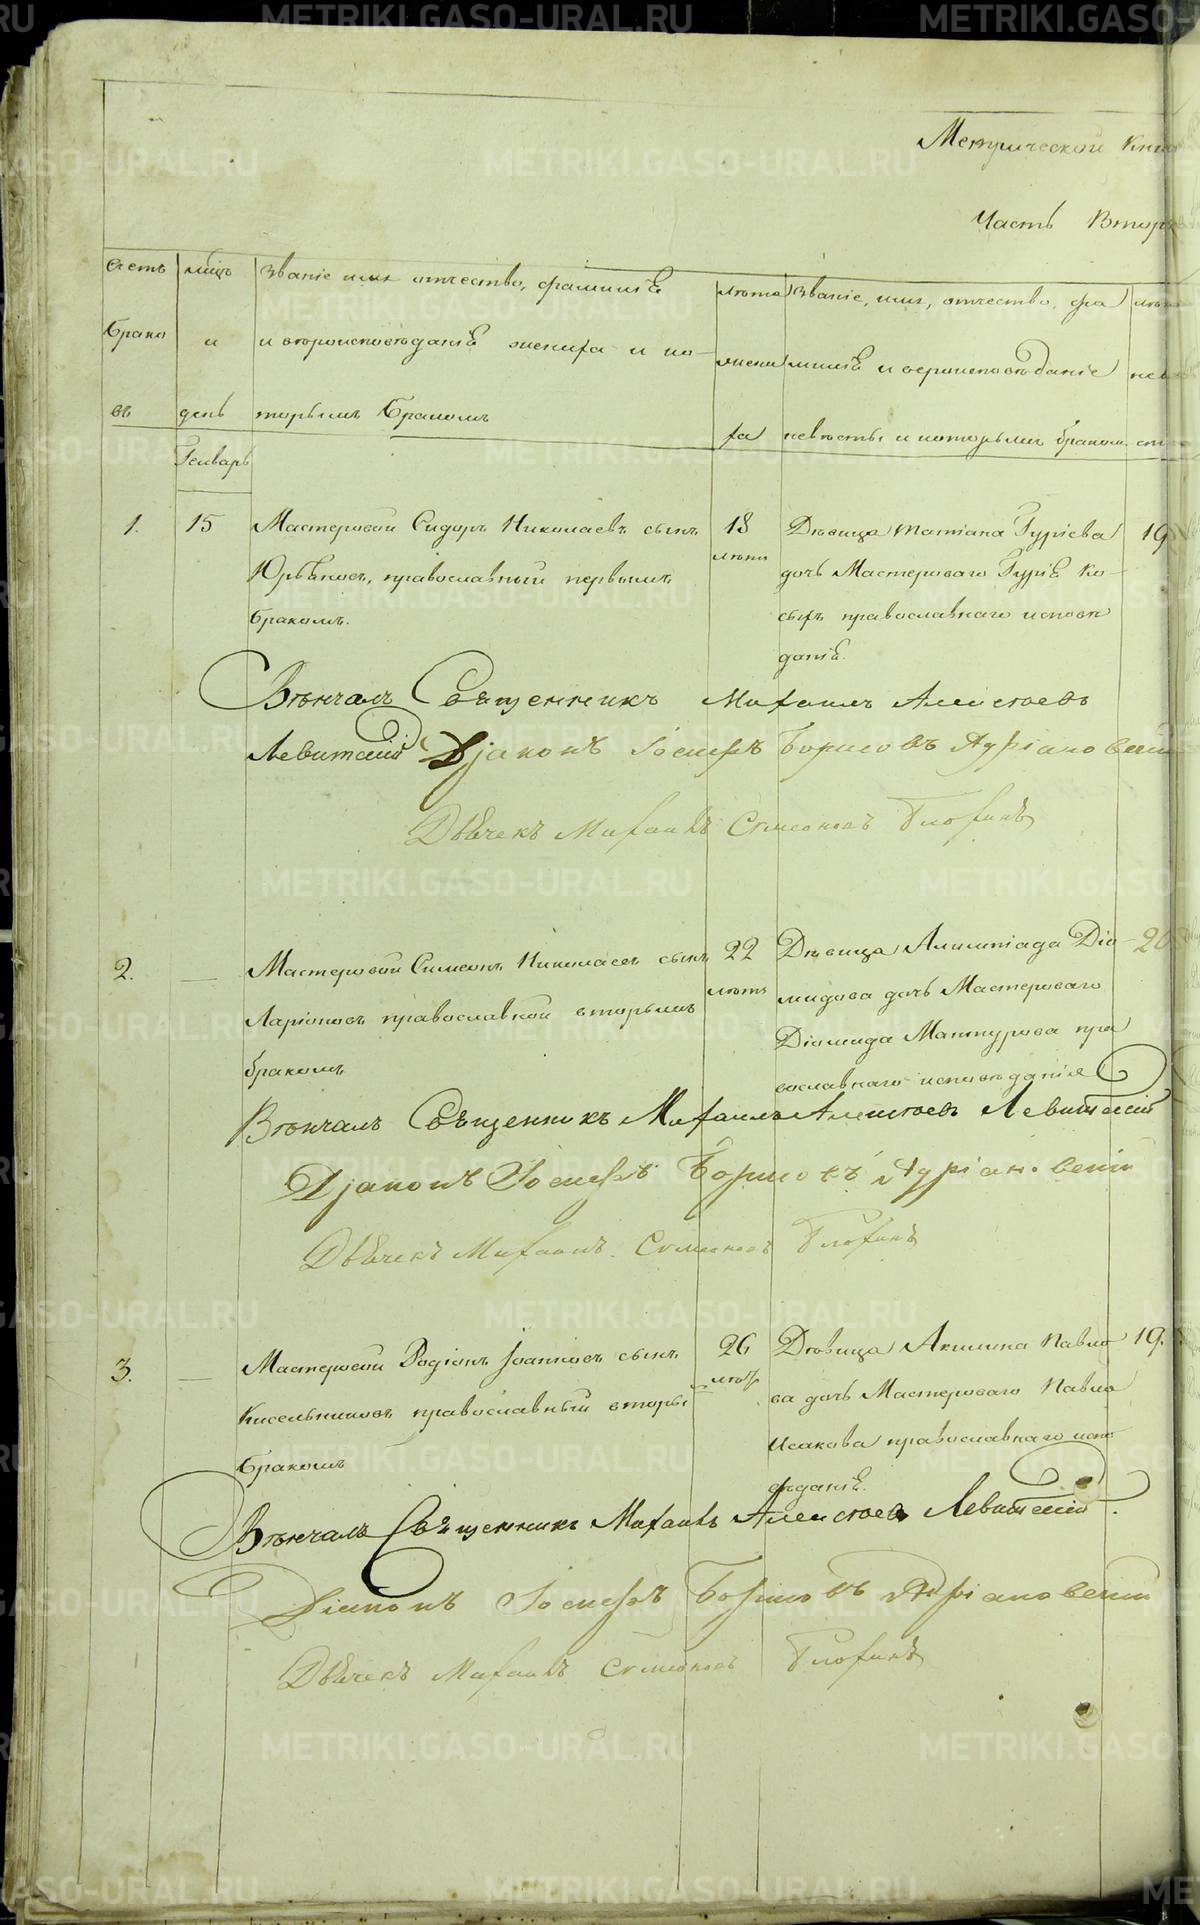 Метрической Книг
Часть Втора
Счетъ
брако
въ
мѣсяцъ
и
день
Званіе имя отчество, фамилія
и вѣроисповѣданіе жениха и ко-
торымъ бракомъ
лѣта
жени
ха
Званіе, имя, отчество, фа
милія и вѣроисповѣданіе
невѣсты и которымъ бракомъ
лѣта
невѣ
сты
Генварь
1.
15
Мастеровой Сидоръ Николаевъ сынъ
православный первымъ
бракомъ.
18
лѣтъ
Дѣвица Татіана Гуріева
дочь Мастероваго Гурія Ко-
сыхъ православнаго исповѣ
данія.
19
Вѣнчалъ Священникъ Михаилъ Алексѣевъ
Левитскій Діаконъ Іосифъ Борисовъ Адріановскій
Дьячекъ Михаилъ Симеоновъ
2.
—
Мастеровой Симеонъ Николаевъ сынъ
Ларіоновъ православной вторымъ
бракомъ
22
лѣтъ
Дѣвица Алимпіада Діо-
мидова дочь Мастероваго
Діомида Мантурова пра
вославнаго исповѣданія
20
Вѣнчалъ Священникъ Михаилъ Алексѣевъ Левитскій
Діаконъ Іосифъ Борисовъ Адріановскій
Дьячекъ Михаилъ Симеоновъ
3.
—
Мастеровой Родіонъ Іоанновъ сынъ
Кисельниковъ православный вторы
бракомъ
26
лѣтъ
Дѣвица Акилина Павло
ва дочь Мастероваго Павла
Исакова православнаго испо
вѣданія.
19.
Вѣнчалъ Священникъ Михаилъ Алексѣевъ Левитскій.
Діаконъ Іосифъ Борисовъ Адріановскій
Дьячекъ Михаилъ Симеоновъ
METRIKI.GASO-URAL.RU